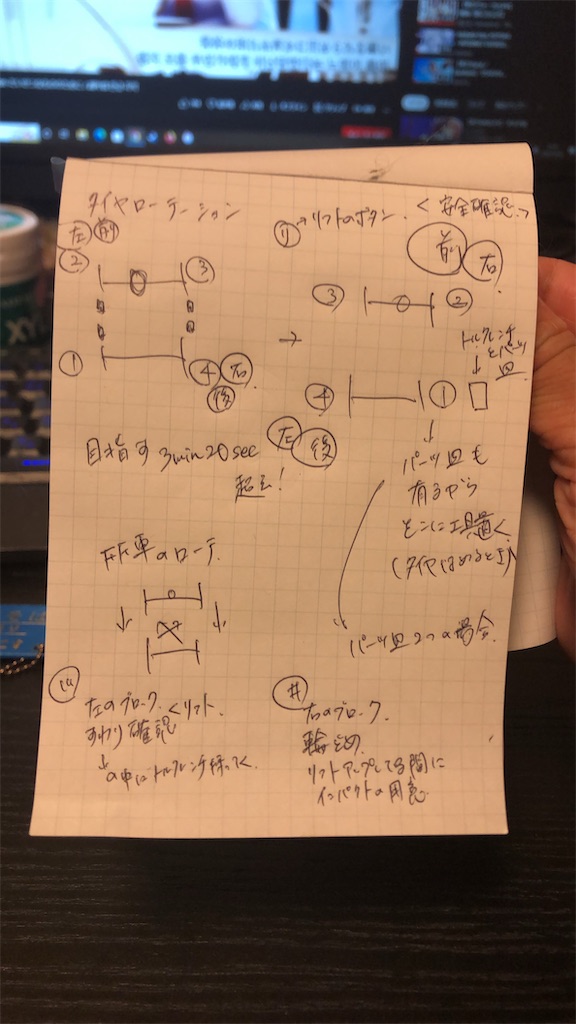 タイヤローテーション
左 前
② ③
① ④ 右
後
目指す 3min20sec
超え!
リ →リフトのボタン. <安全確認.>
前 右
③ ②
→
トルクレンチ
とパーツ
皿
④ ①
左 後
パーツ皿も
有るから
そこに工具置く
(タイヤはめるとき)
パーツ皿2つの場合.
FF車のローテ.
左のブロック <リフト.
すわり確認
の中にトルクレンチ持ってく
右のブロック.
輪止め.
リフトアップしてる間に
インパクトの用意